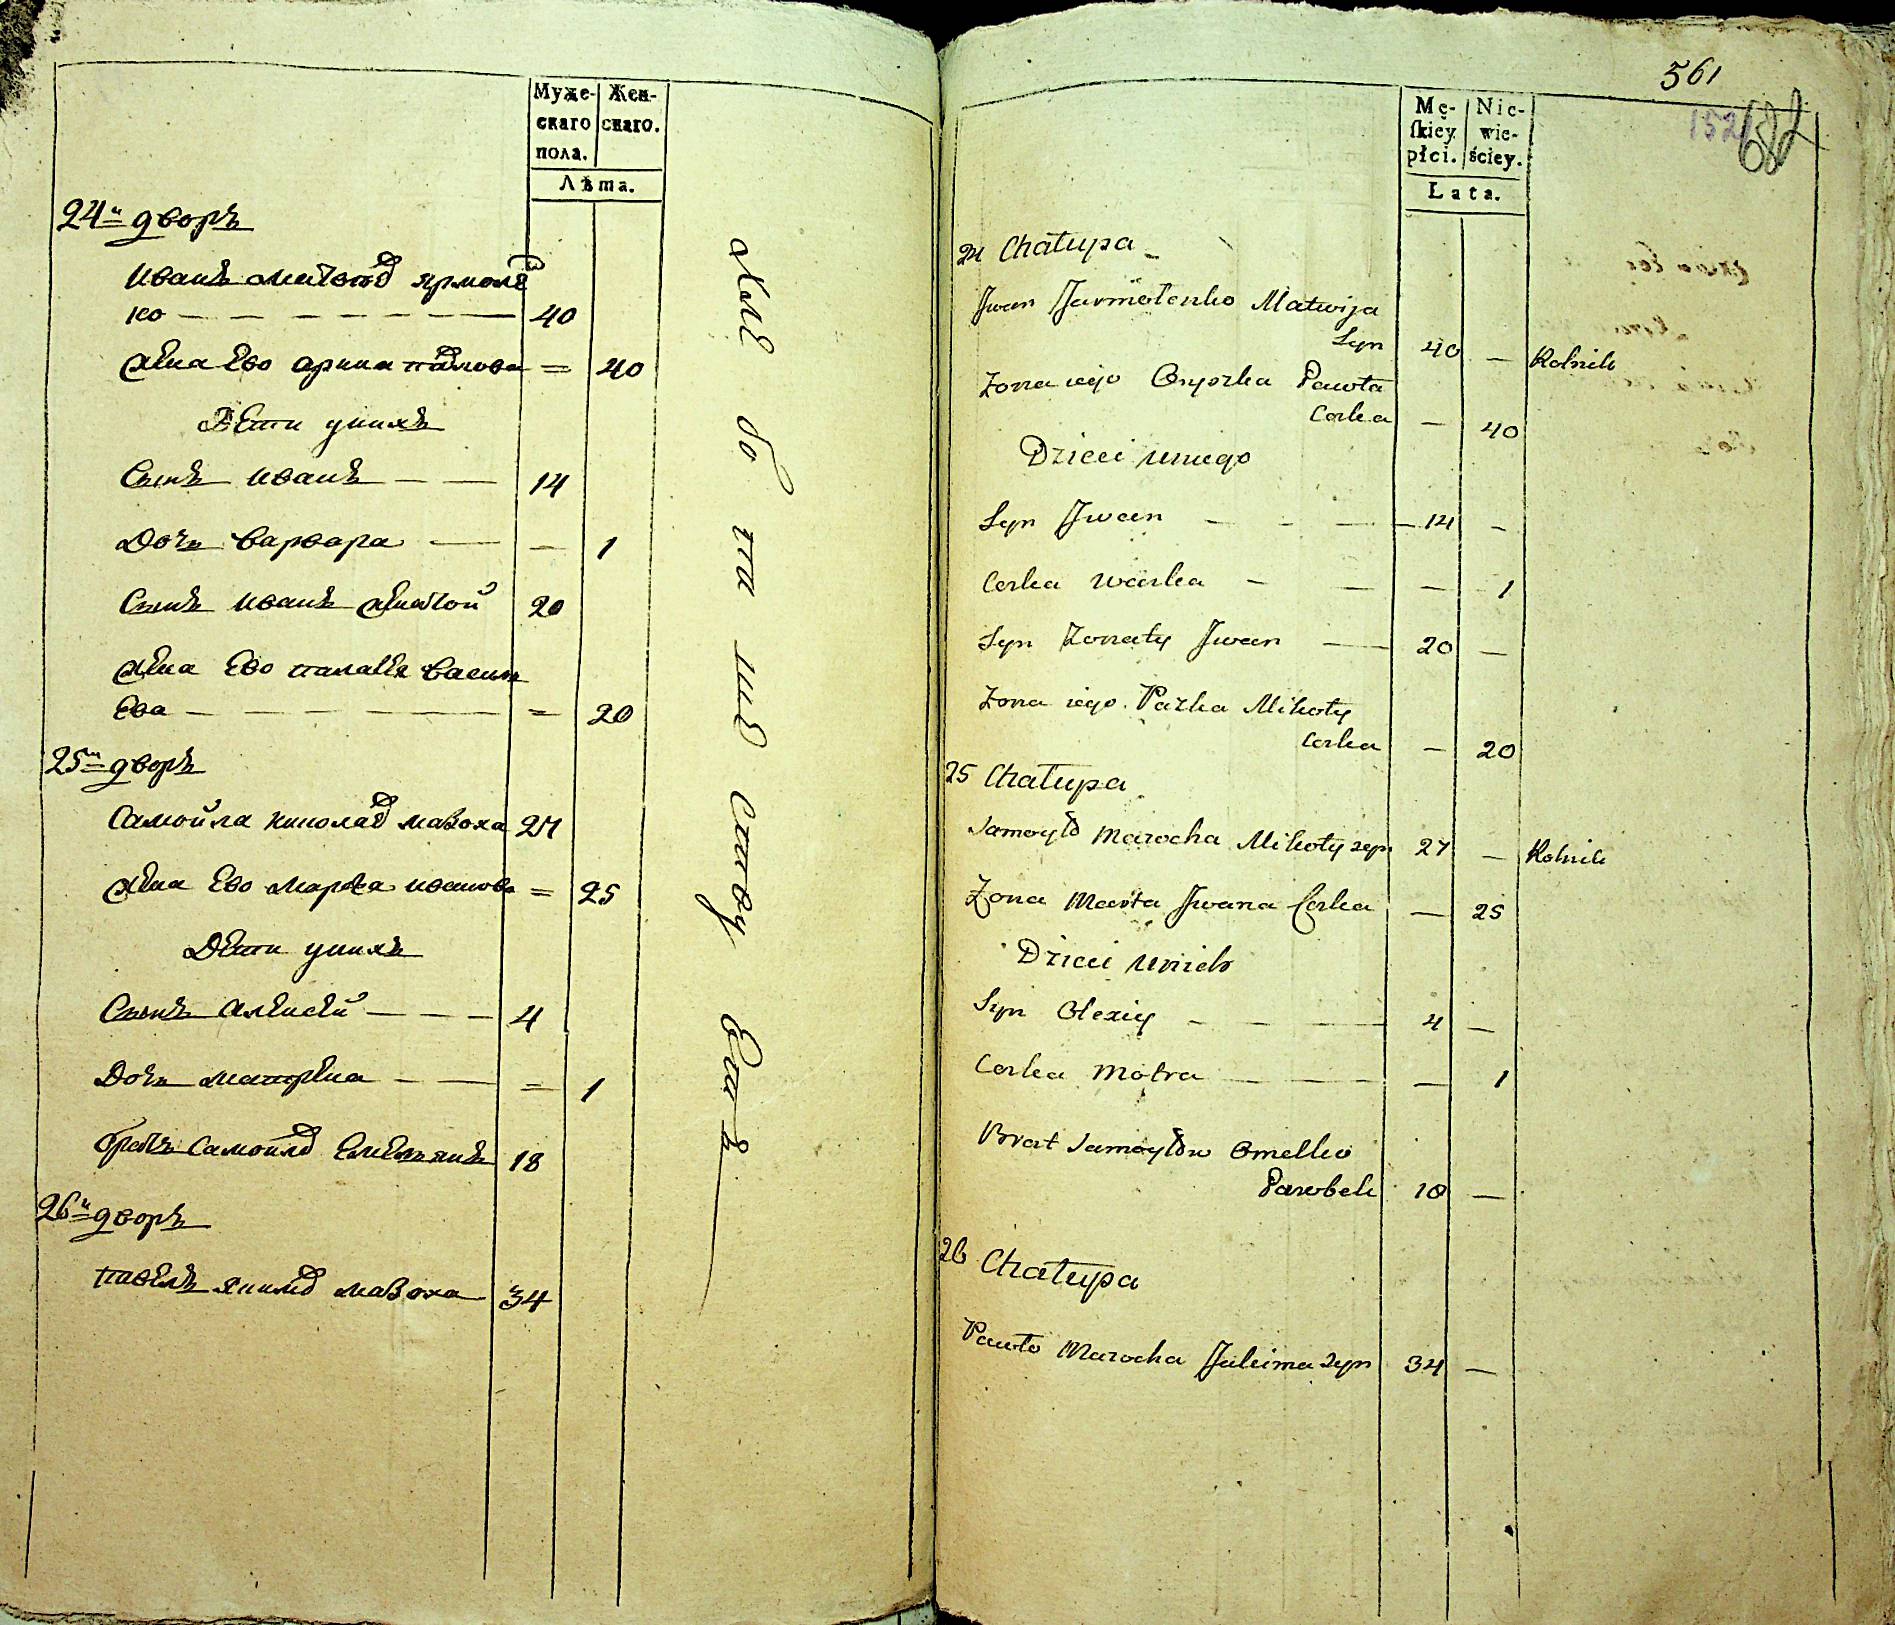 Муже-
скаго
пола.
Жен-
скаго.
Лѣта.
24й дворъ
Иванъ Матвѣевъ Ярмолѣн
ко — — — — — — — 40
Жена Ево Арина павлова = 40
Дѣти унихъ
Сынъ Иванъ — — 14
Дочь Варвара — — 1
Сынъ Иванъ Женатой 20
Жена Ево палажка васил
Ева — — — — — = 20
25й дворъ
Самойла николаев мазоха 27
Жена Ево марфа иванова = 25
Дѣти унихъ
Сынъ Алексей — — — 4
Дочь матрена — — = 1
братъ Самойлов Емельянъ 18
26й дворъ
павелъ якимов мазоха 34
561
152
Mę-
skiey
płci.
Nie-
wie-
ściey.
Lata.
24 Chałupa
Jwan Jarmolenko Matwija
Syn 40 — Rolnik
Zona iego Oryszka Pawła
Corka — 40
Dzieci uniego
Syn Jwan — — — — 14 —
Corka Warka — — — 1
Syn Zonaty Jwan — 20 —
Zona iego Pazka Mikoły
Corka — 20
25 Chałupa
Samoyło Mazocha Mikoły syn 27 — Rolnik
Zona Marta Jwana Corka — 25
Dzieci unich
Syn Olexiy — — — 4 —
Corka Motra — — — — 1
Brat Samoyłow Omelko
Parobek 18 —
26 Chałupa
Pawło Mazocha Jakima syn 34 —